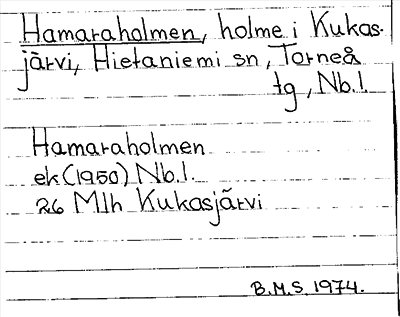 Hamaraholmen, holme i Kukas-
järvi, Hietaniemi sn, Torneå
tg, Nb.l.
Hamaraholmen
ek (1950) Nb.l.
26 Mlh Kukasjärvi
B.M.S. 1974.